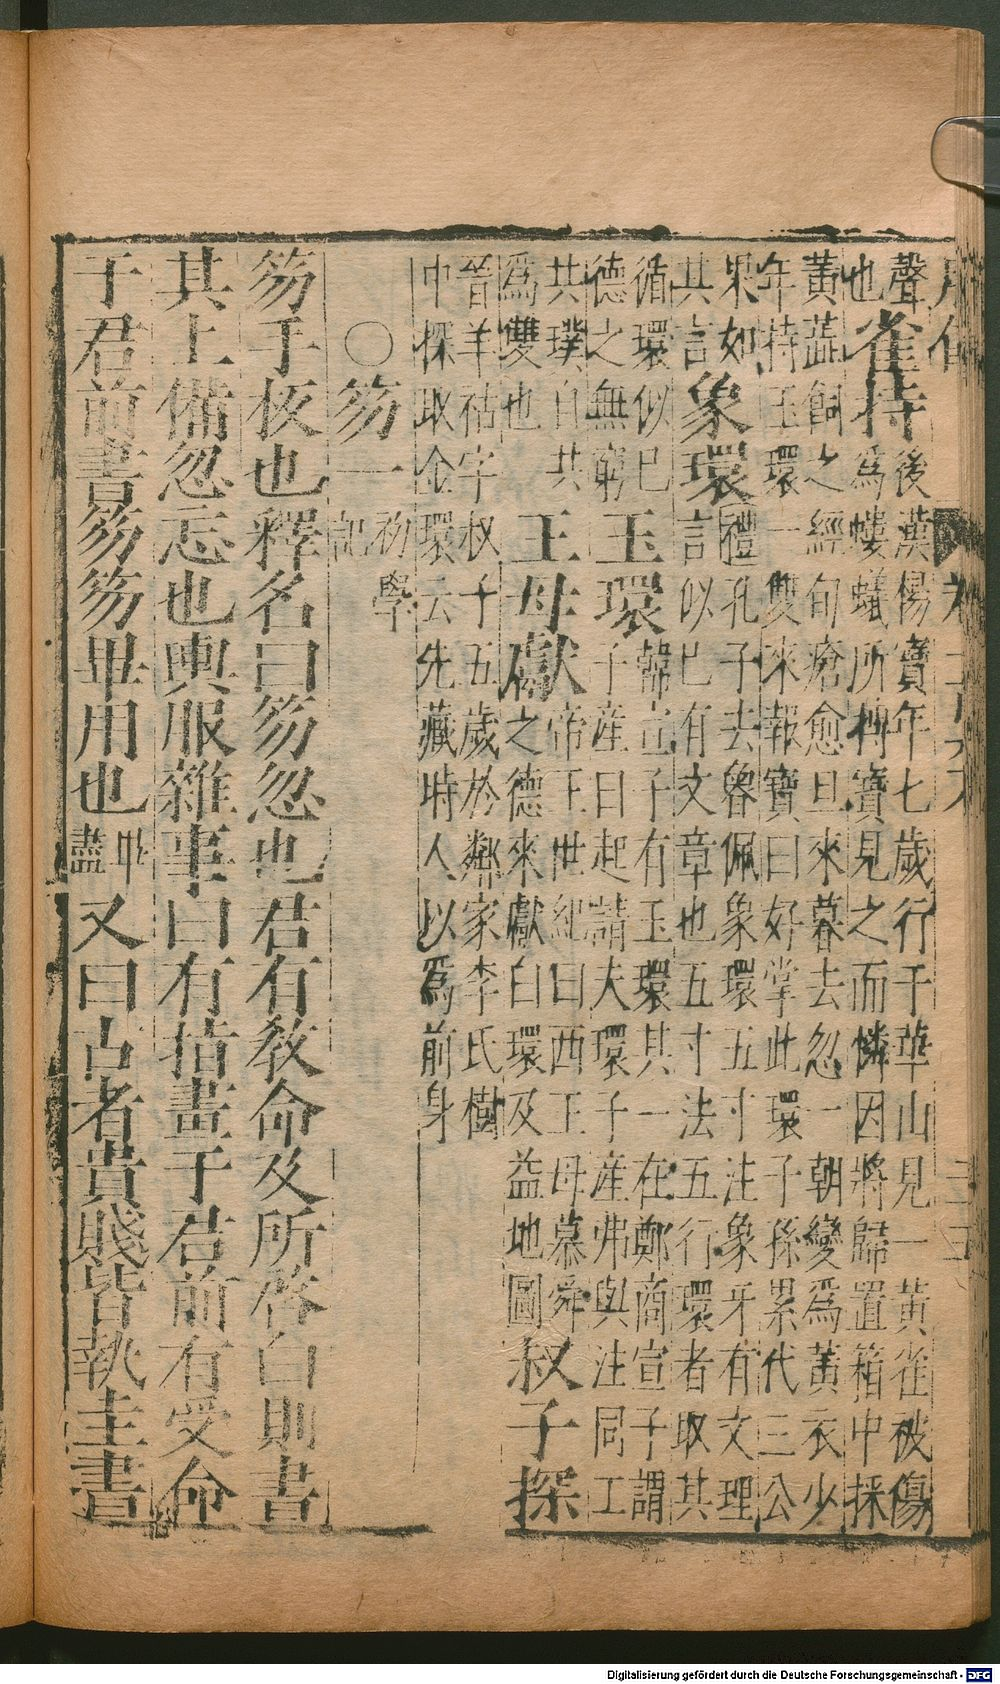 聲後漢楊寶年七歲行于華山見一黃雀被傷
也雀持為螻蟻所搏寶見之而憐因將歸置箱中採
黃蕋飼之經旬瘡愈旦來暮去忽一朝變為黃衣少
年持玉環一雙來報寶曰好掌此環子孫累代三公
果如象環禮孔子去魯佩象環五寸注象牙有文理
其言言似已有文章也五寸法五行環者取其
循環似巳玉環韓宣子有玉環其一在鄭商宣子謂
德之無窮子產曰起請夫環子產弗與注同工
共璞自共王母獻帝王世紀曰西王母慕舜
為雙也之德來獻白環及益地圖叔子探
晉羊祜字叔子五歲於鄰家李氏樹
中探取金環云先藏時人以為前身
○笏一初學記
笏手板也釋名曰笏忽也君有敎命及所啓白則書
其上備忽忘也輿服雜事曰有指畫于君前有受命
于君前書笏笏畢用也畢盡又曰古者貴賤皆執圭書
Digitalisierung gefördert durch die Deutsche Forschungsgemeinschaft - DFG